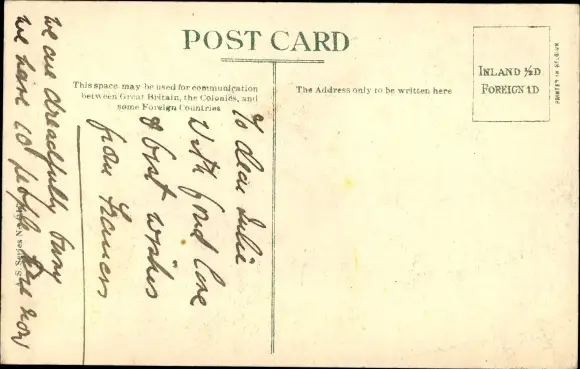 POST CARD
This space may be used for communication
between Great Britain, the Colonies, and
some Foreign Countries
The Address only to be written here
INLAND ½D
FOREIGN 1D
To dear Julie
With fond love
& best wishes
from Frances
We are dreadfully busy
We have 20 people here now